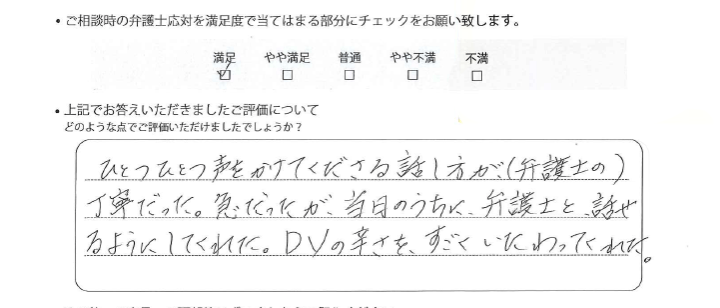 ・ご相談時の弁護士応対を満足度で当てはまる部分にチェックをお願い致します。
満足 やや満足 普通 やや不満 不満
☑ □ □ □ □
・上記でお答えいただきましたご評価について
どのような点でご評価いただけましたでしょうか？
ひとつひとつ声をかけてくださる話し方が、(弁護士の)
丁寧だった。急だったが、当日のうちに、弁護士と、話せ
るようにしてくれた。DVの辛さを、すごくいたわってくれた。